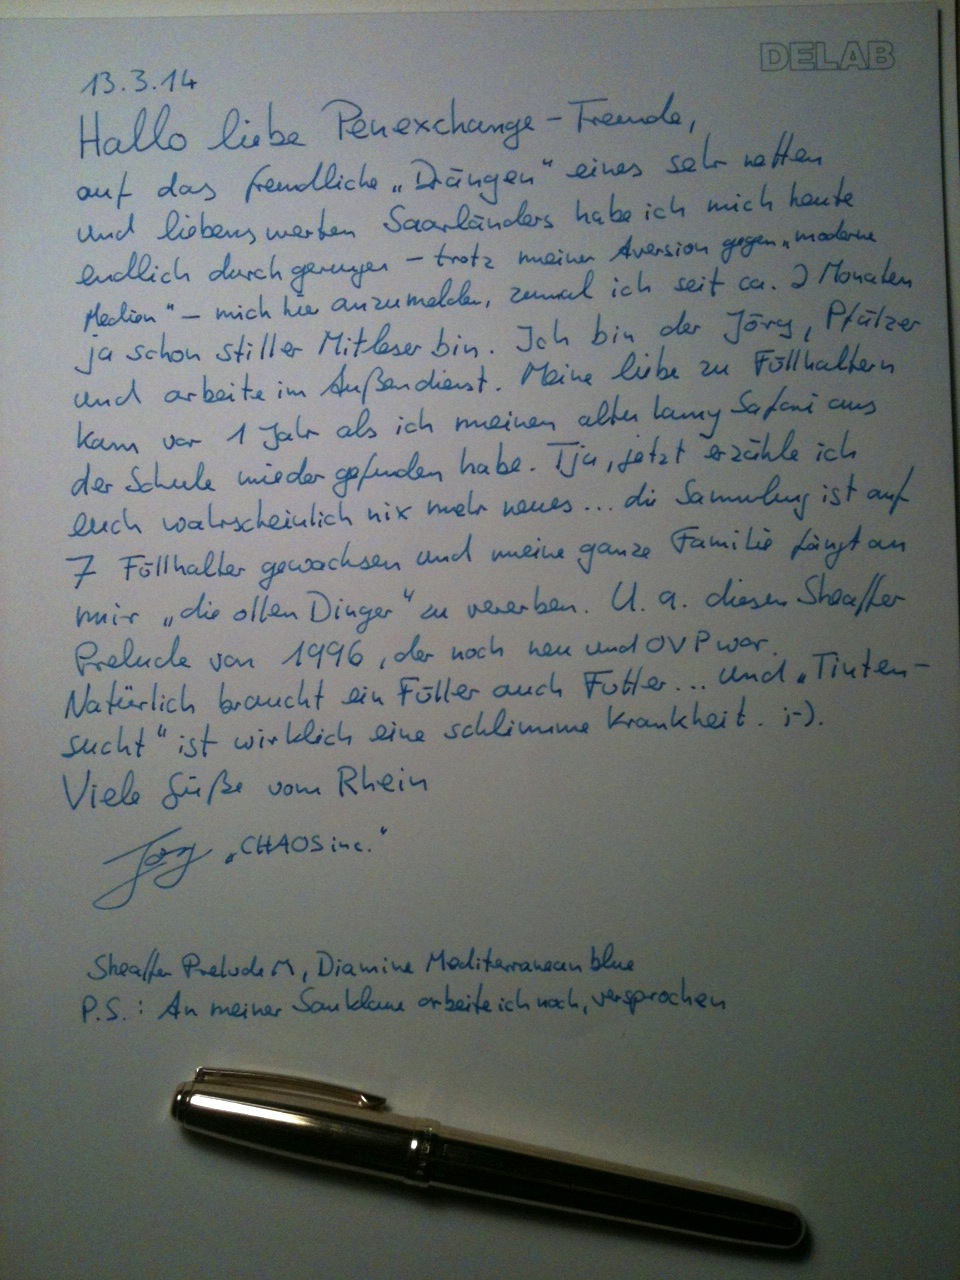 DELAB
13.3.14
Hallo liebe Penexchange-Freunde,
auf das freundliche „Drängen“ eines sehr netten
und liebenswerten Saarländers habe ich mich heute
endlich durchgerungen – trotz meiner Aversion gegen „moderne
Medien“ – mich hier anzumelden, zumal ich seit ca. 2 Monaten
ja schon stiller Mitleser bin. Ich bin der Jörg, Pfälzer
und arbeite im Außendienst. Meine liebe zu Füllhaltern
kam vor 1 Jahr als ich meinen alten Lamy Safari aus
der Schule wieder gefunden habe. Tja, jetzt erzähle ich
euch wahrscheinlich nix mehr neues... die Sammlung ist auf
7 Füllhalter gewachsen und meine ganze Familie fängt an
mir „die ollen Dinger“ zu vererben. U. a. diesen Sheaffer
Prelude von 1996, der noch neu und OVP war.
Natürlich braucht ein Füller auch Futter... und „Tinten-
sucht“ ist wirklich eine schlimme Krankheit. ;-).
Viele Grüße vom Rhein
Jörg „CHAOS inc.“
Sheaffer Prelude M, Diamine Mediterranean blue
P.S.: An meiner Sauklaue arbeite ich noch, versprochen